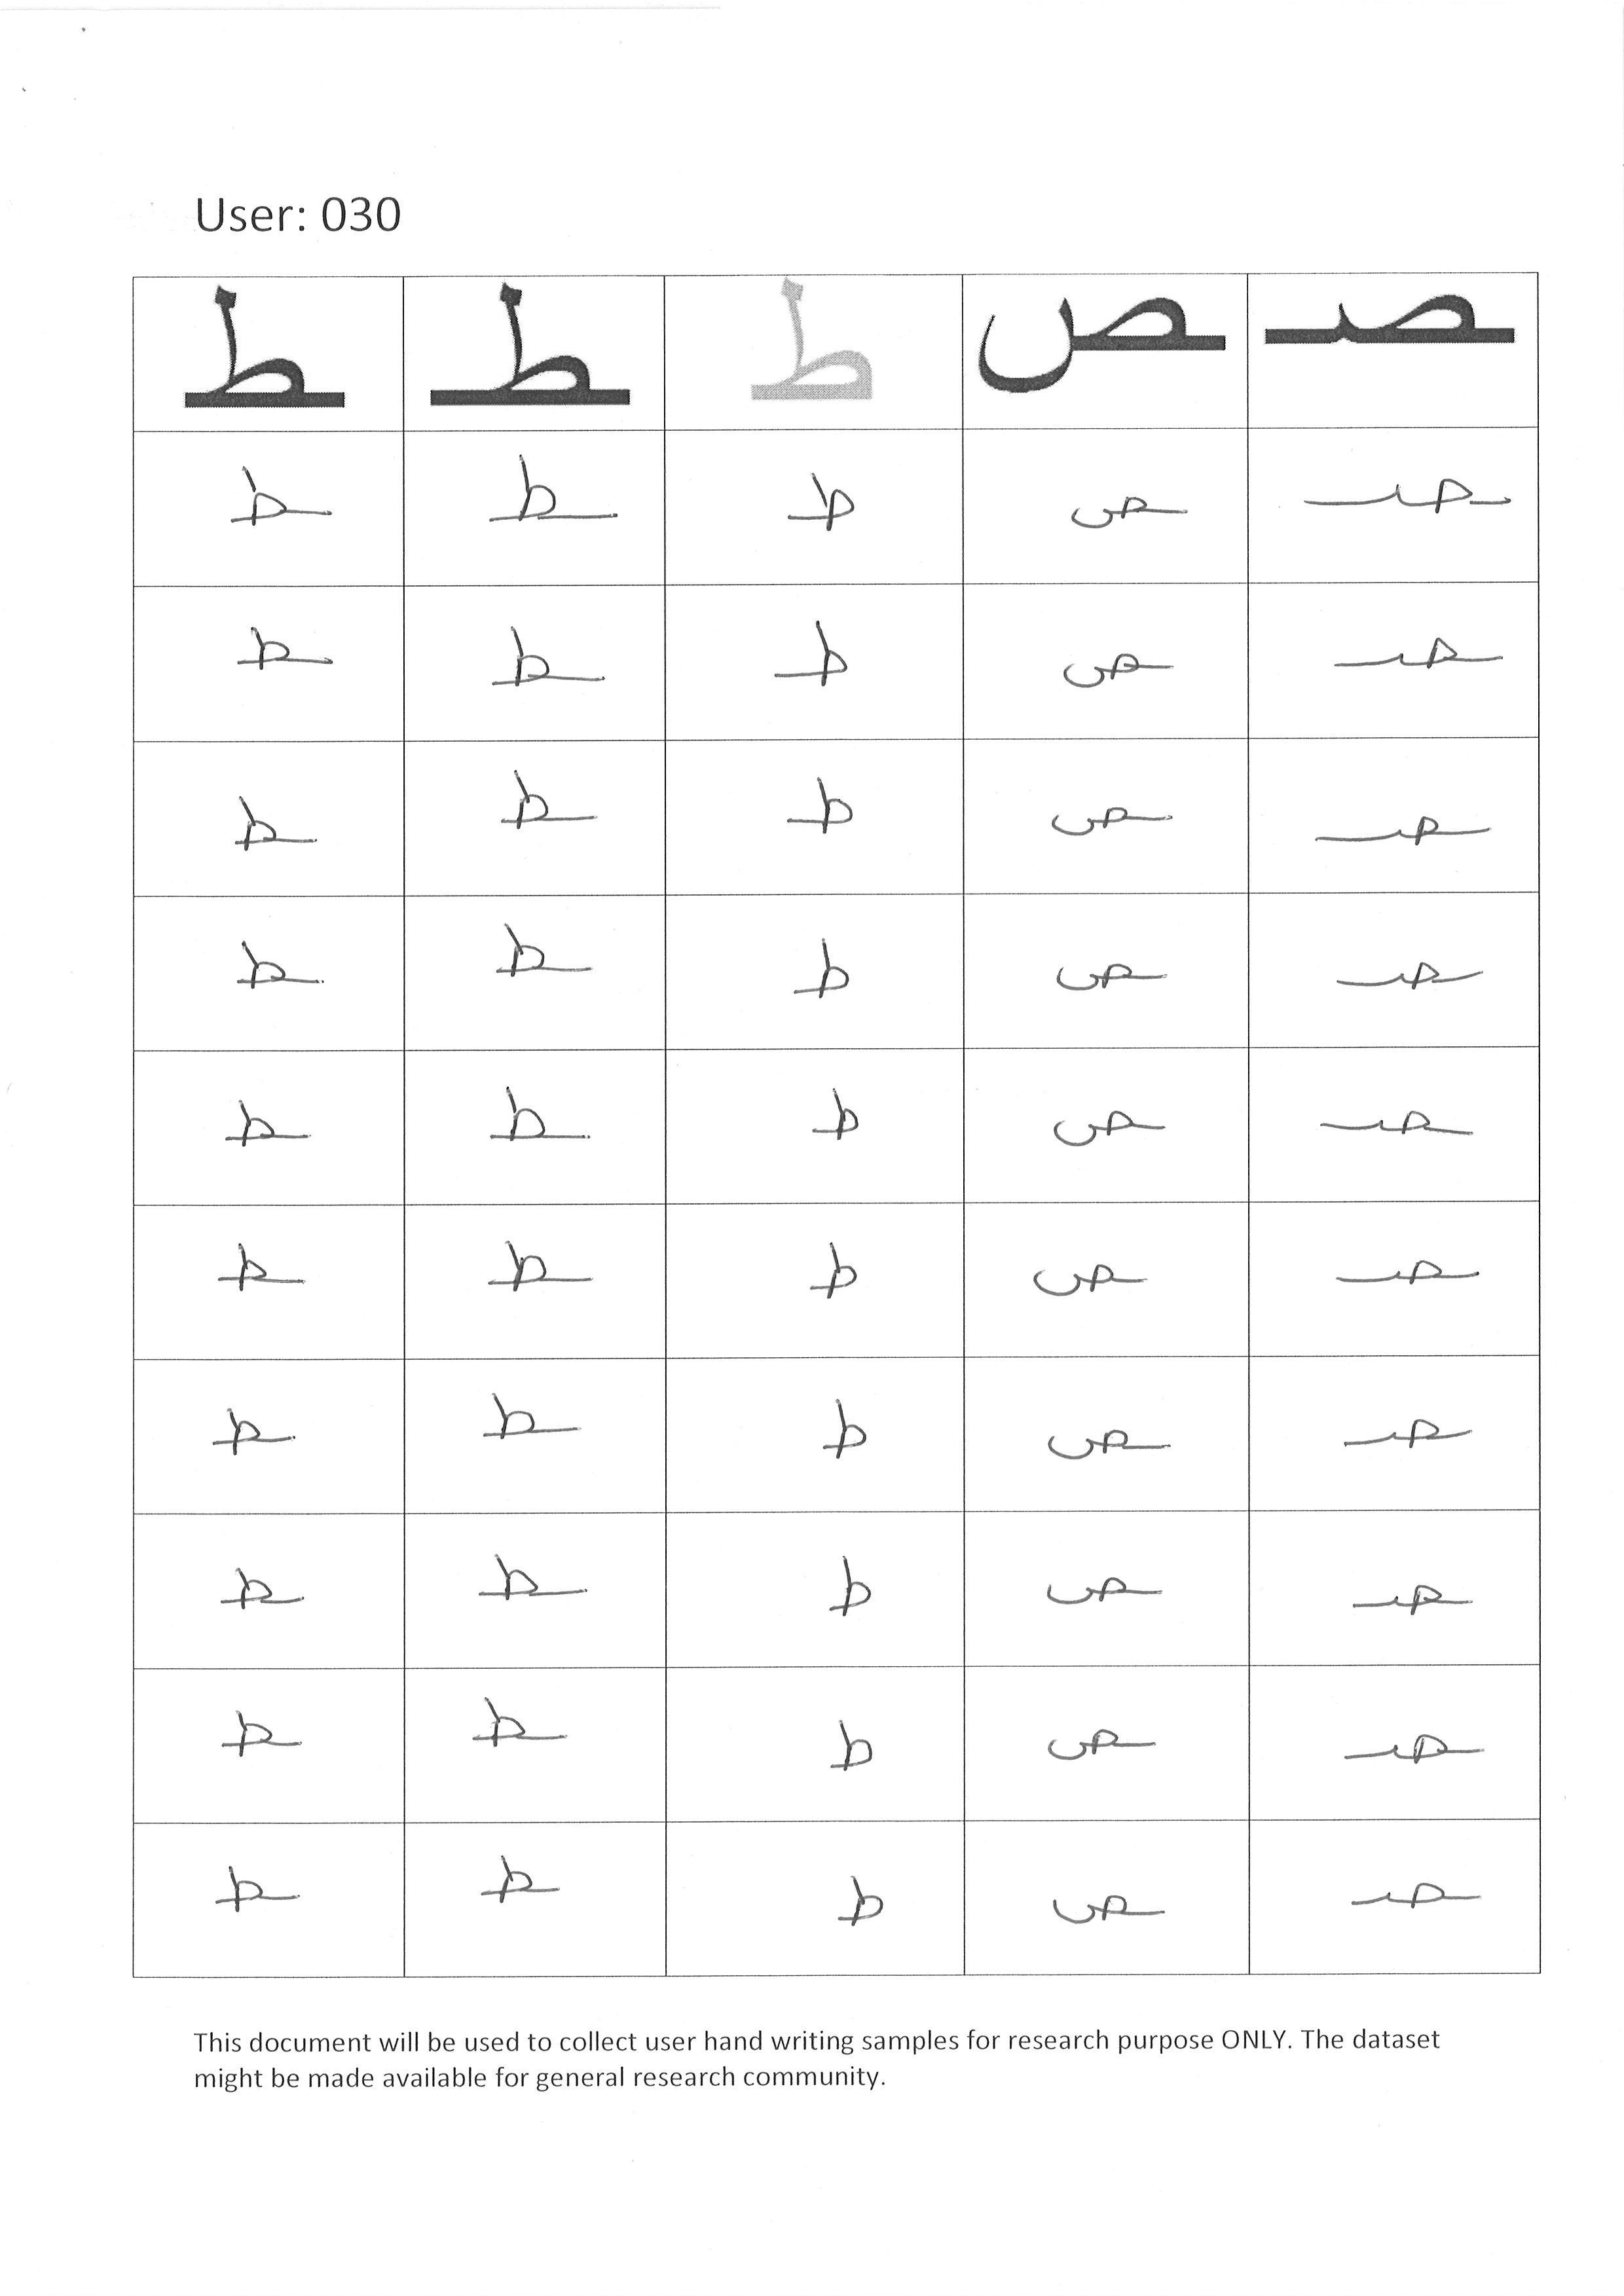 User: 030
ـصـ ـص ط ـطـ ـط
ـصـ ـص ط ـطـ ـط
ـصـ ـص ط ـطـ ـط
ـصـ ـص ط ـطـ ـط
ـصـ ـص ط ـطـ ـط
ـصـ ـص ط ـطـ ـط
ـصـ ـص ط ـطـ ـط
ـصـ ـص ط ـطـ ـط
ـصـ ـص ط ـطـ ـط
ـصـ ـص ط ـطـ ـط
ـصـ ـص ط ـطـ ـط
This document will be used to collect user hand writing samples for research purpose ONLY. The dataset
might be made available for general research community.